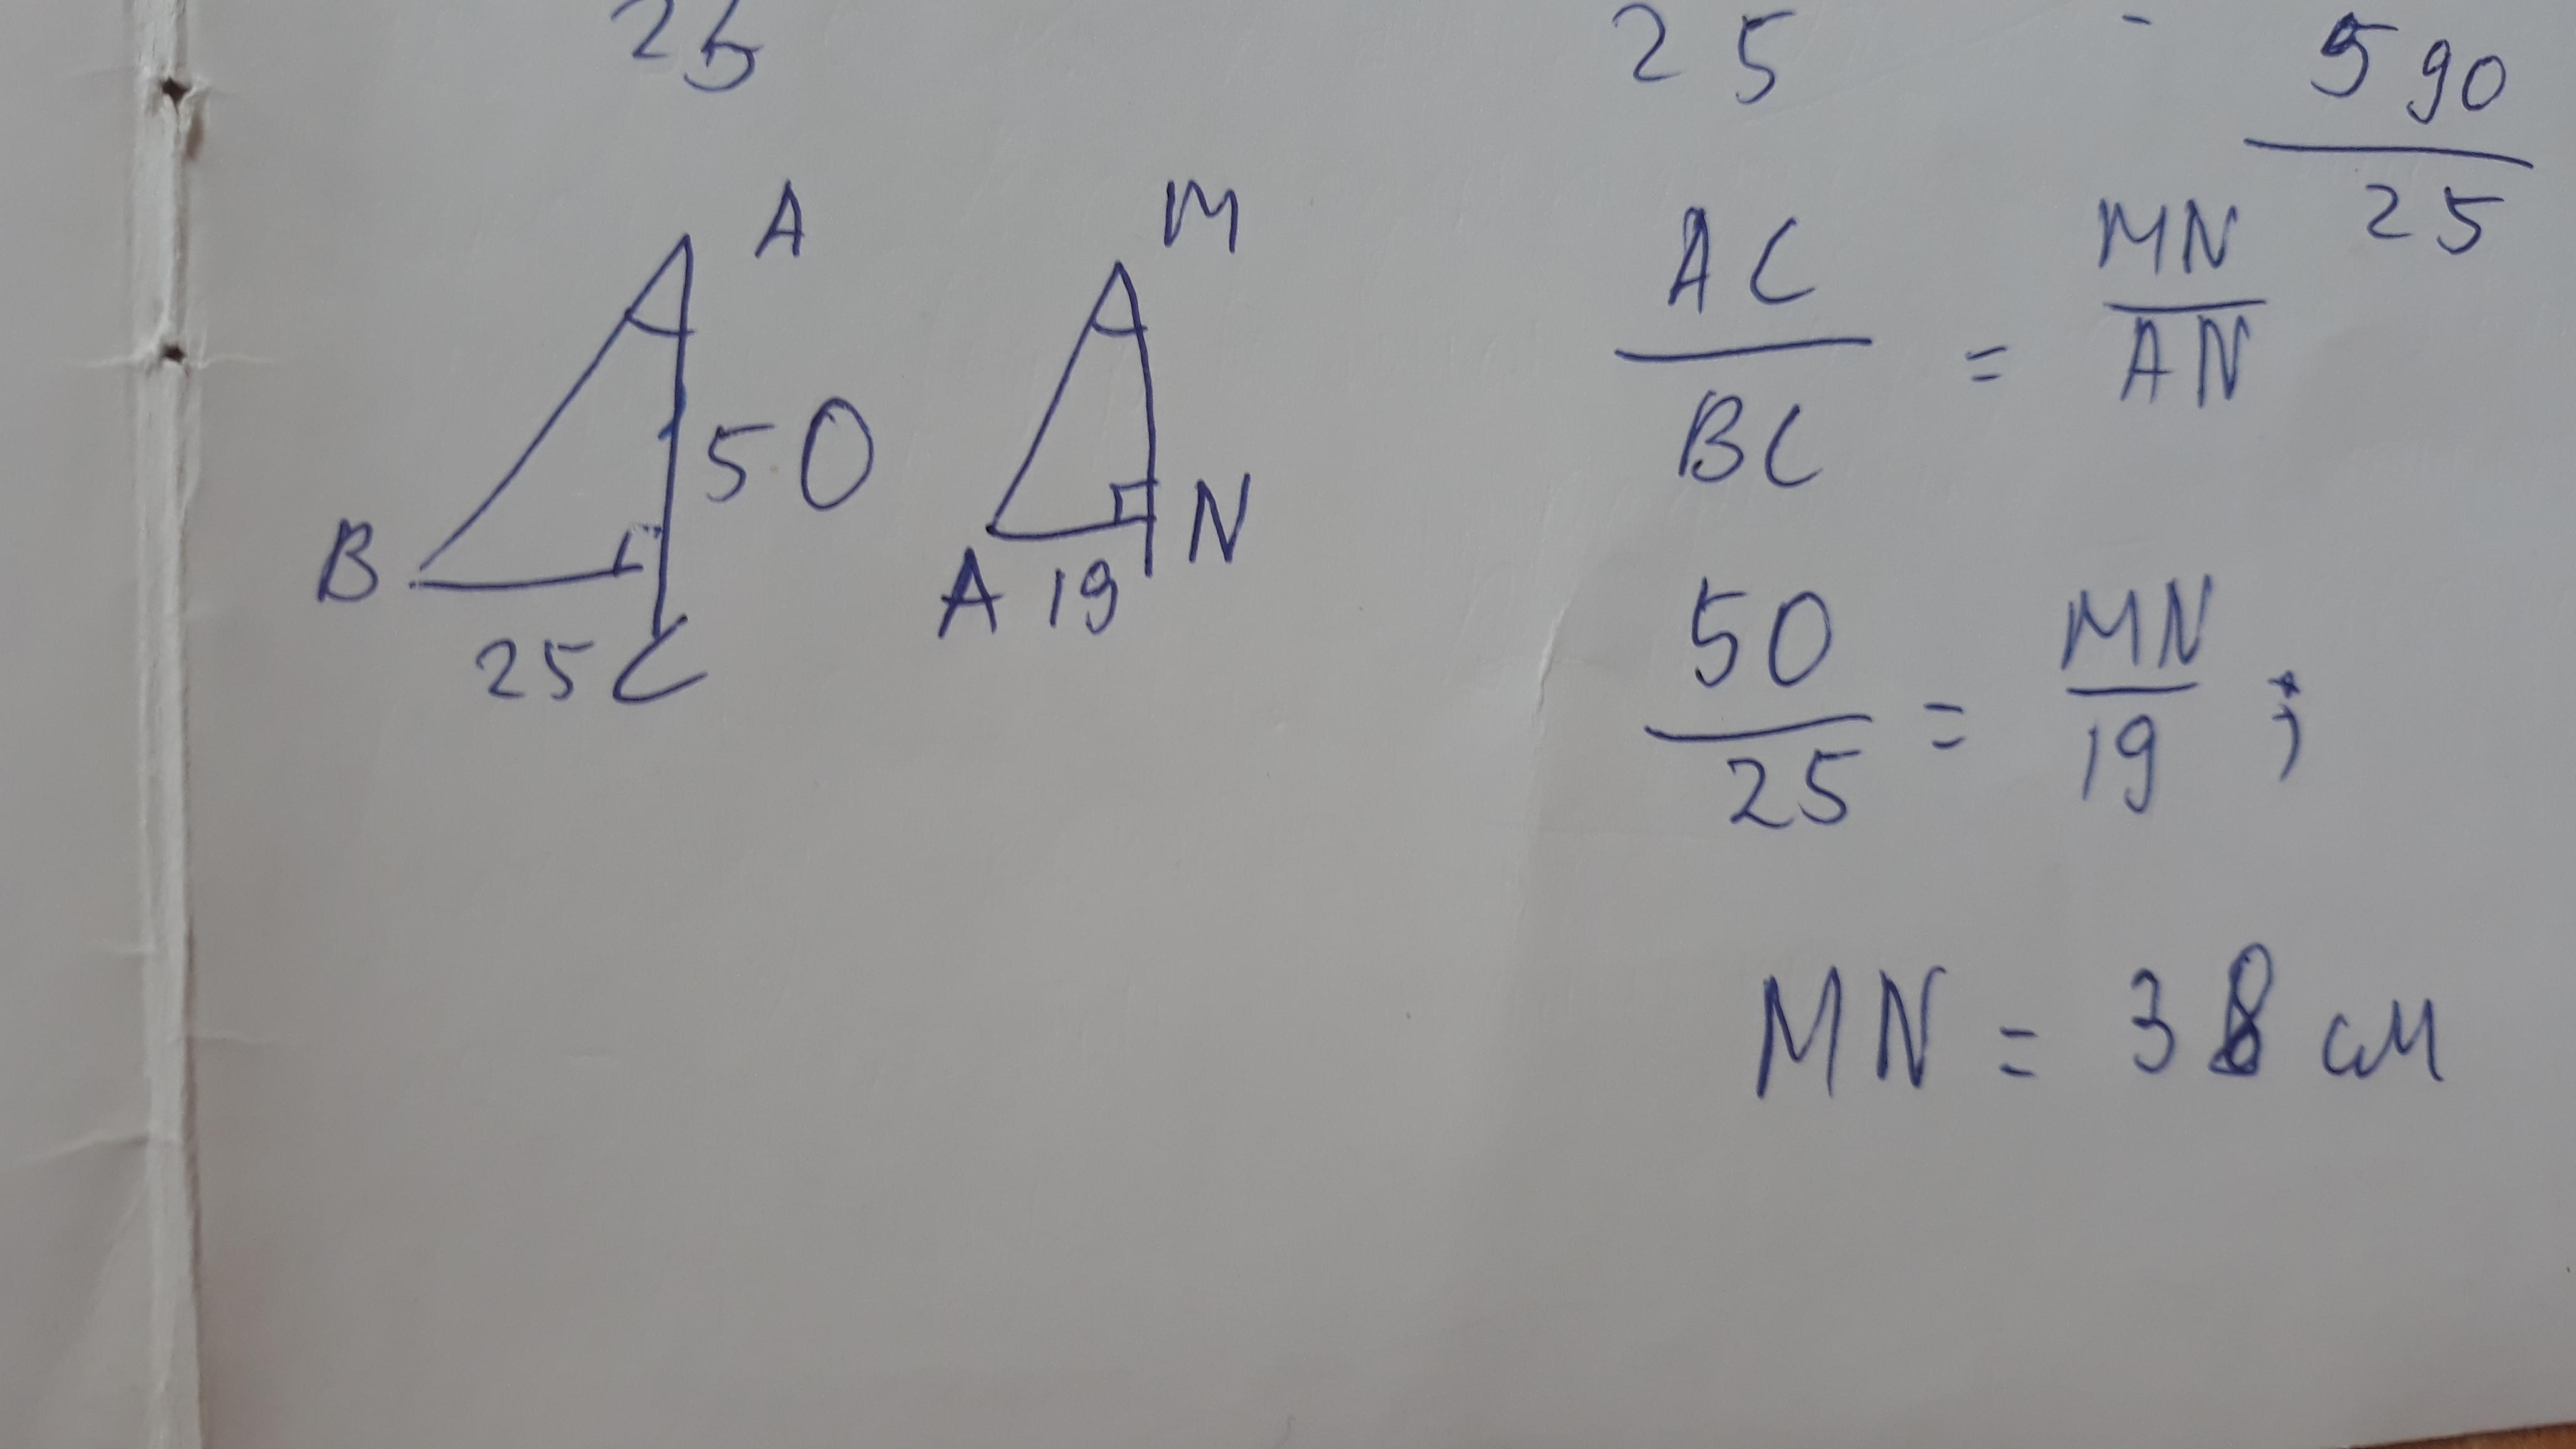 25
25
590
25
A
M
B
50
N
25
C
A
19
AC
BC
=
MN
AN
50
25
=
MN
19
;
MN = 38 см